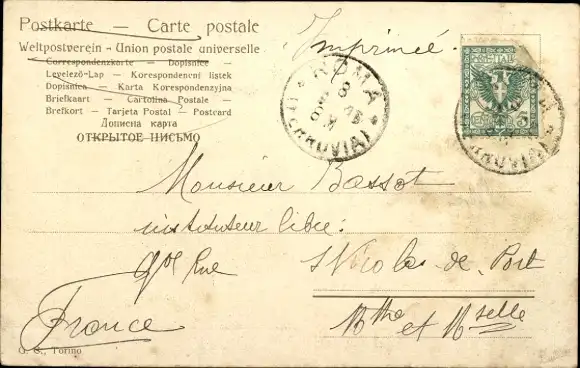 Postkarte — Carte postale
Weltpostverein - Union postale universelle
Correspondenzkarte — Dopisnice —
Levelező-Lap — Korespondencni listek
Dopisnica — Karta Korespondencyjna
Briefkaart — Cartolina Postale —
Brefkort — Tarjeta Postal — Postcard
Дописна карта
ОТКРЫТОЕ ПИСЬМО
Imprimée
ROMA
8
(FERROVIA)
5
Monsieur Bassot
instituteur libre.
Gde Rue
St Nicolas-de-Port
Mthe et Mselle
France
G. G., Torino